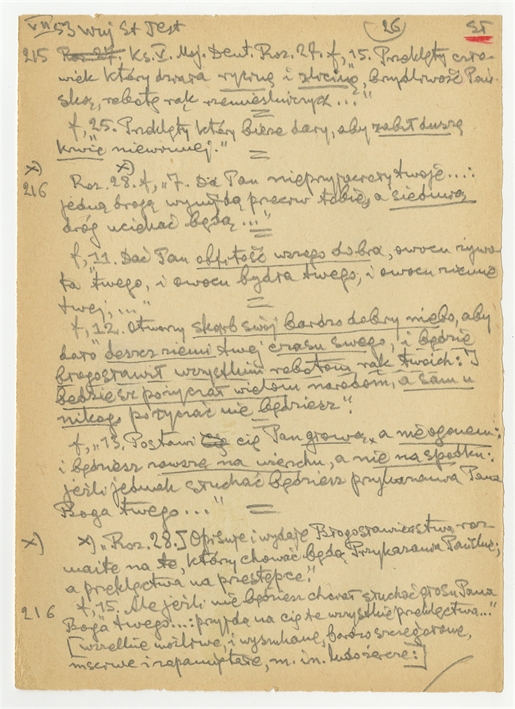 VII 53 Wuj St Test (26) ST
215 Roz. 27. Ks. V. Moj. Deut. Roz. 27. f, „15. Przeklęty czło-
wiek który działa rycinę i zlicinę, brzydliwość Pań-
ską, robotę rąk rzemieślniczych ..."
f, „25. Przeklęty który bierze dary, aby zabił duszę
krwie niewinnej."
x) x)
216 Roz. 28. f, „7. Da Pan nieprzyjacioły twoje ...:
jedną drogą wynijdą przeciw tobie, a siedmią
dróg uciekać będą ..."
f, „11. Da Pan obfitość wszego dobra, owocu żywo-
ta twego, i owocu bydła twego, i owocu ziemie
twej, ..."
f, „12. Otworzy skarb swój bardzo dobry niebo, aby
dało deszcz ziemi twej czasu swego, i będzie
błogosławił wszystkim robotom rąk twoich: ]
będziesz pożyczał wielom narodom, a sam u
nikogo pożyczać nie będziesz".
f, „13. Postawi cię Pan głową, a nie ogonem:
i będziesz zawsze na wierzchu, a nie na spodku:
jeśli jednak słuchać będziesz przykazania Pana
Boga twego ..."
x) x) „Roz. 28. ] Opisuje i wydaje Błogosławieństwa roz-
maite na te, którzy chować będą Przykazania Pańskie;
a przeklęctwa na przestępce."
f, „15. Ale jeśli nie będziesz chciał słuchać głosu Pana
216 Boga twego ...: przyjdą na cię te wszystkie przeklęctwa..."
[wszelkie możliwe, i wyszukane, bardzo szczegółowe,
mściwe i zapamiętałe, m. in. ludożercze:]